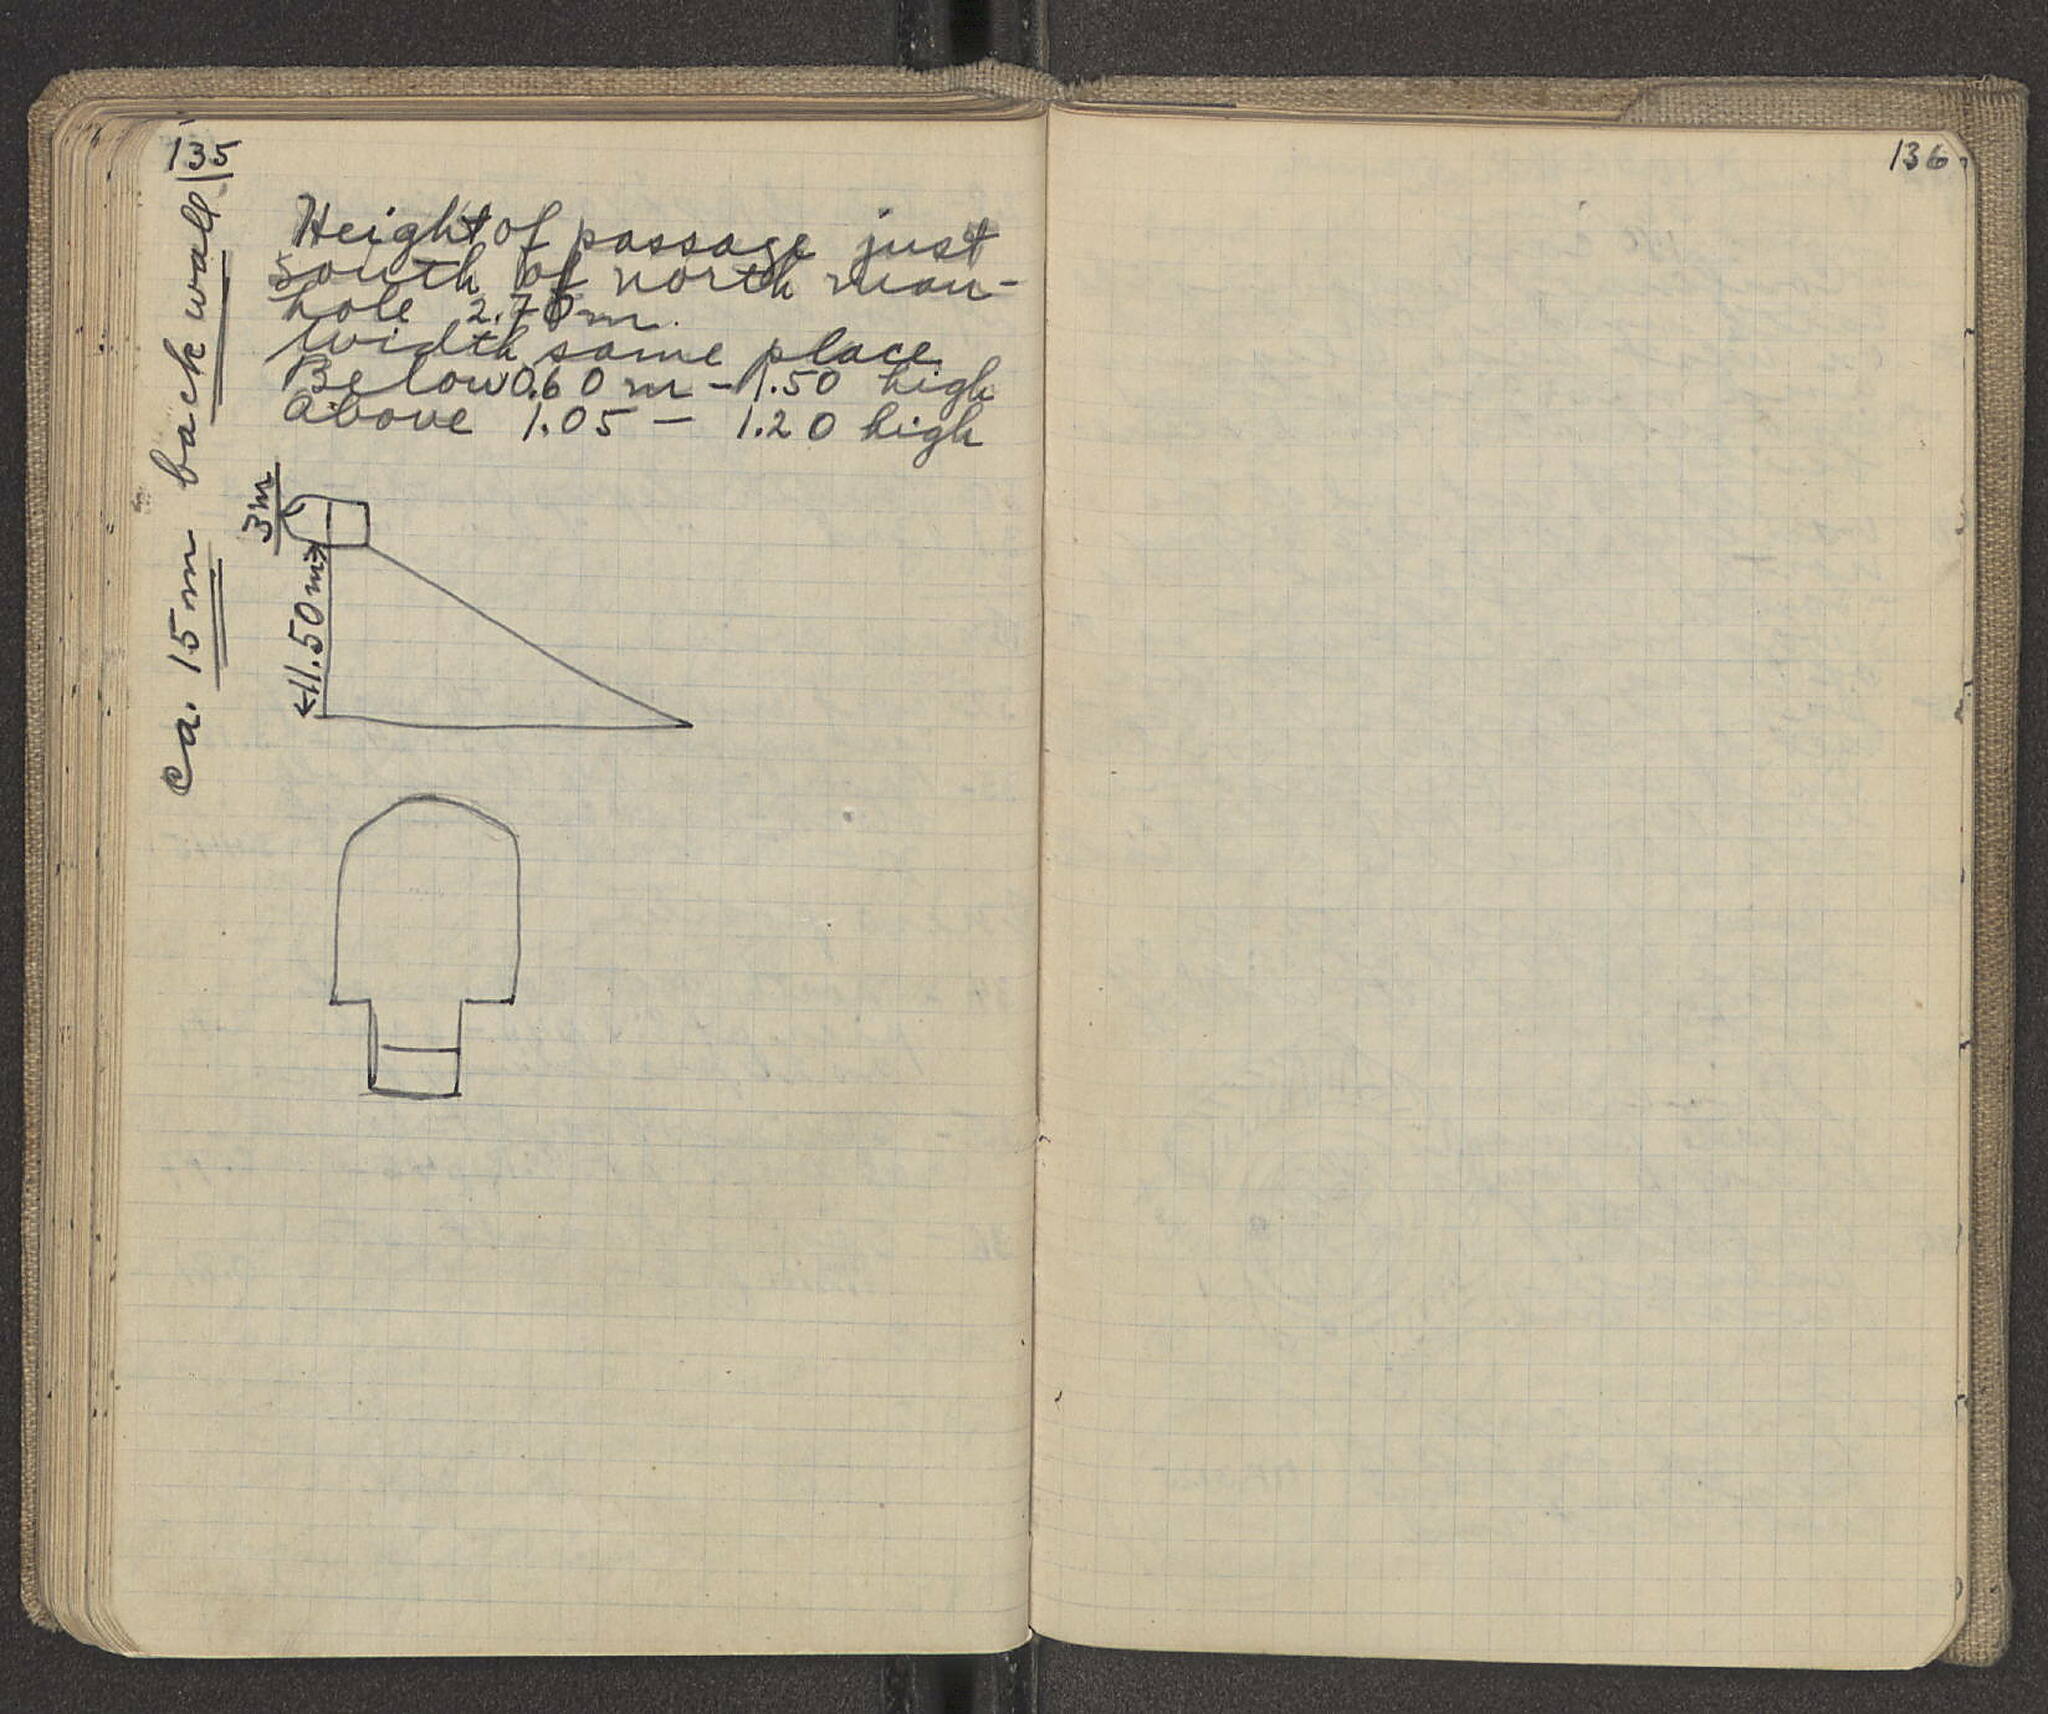 135
Height of passage just
south of north man-
hole 2.70 m.
Width same place
Below 0.60 m - 1.50 high
above 1.05 - 1.20 high
ca. 15 m back wall
3m
11.50 m
136